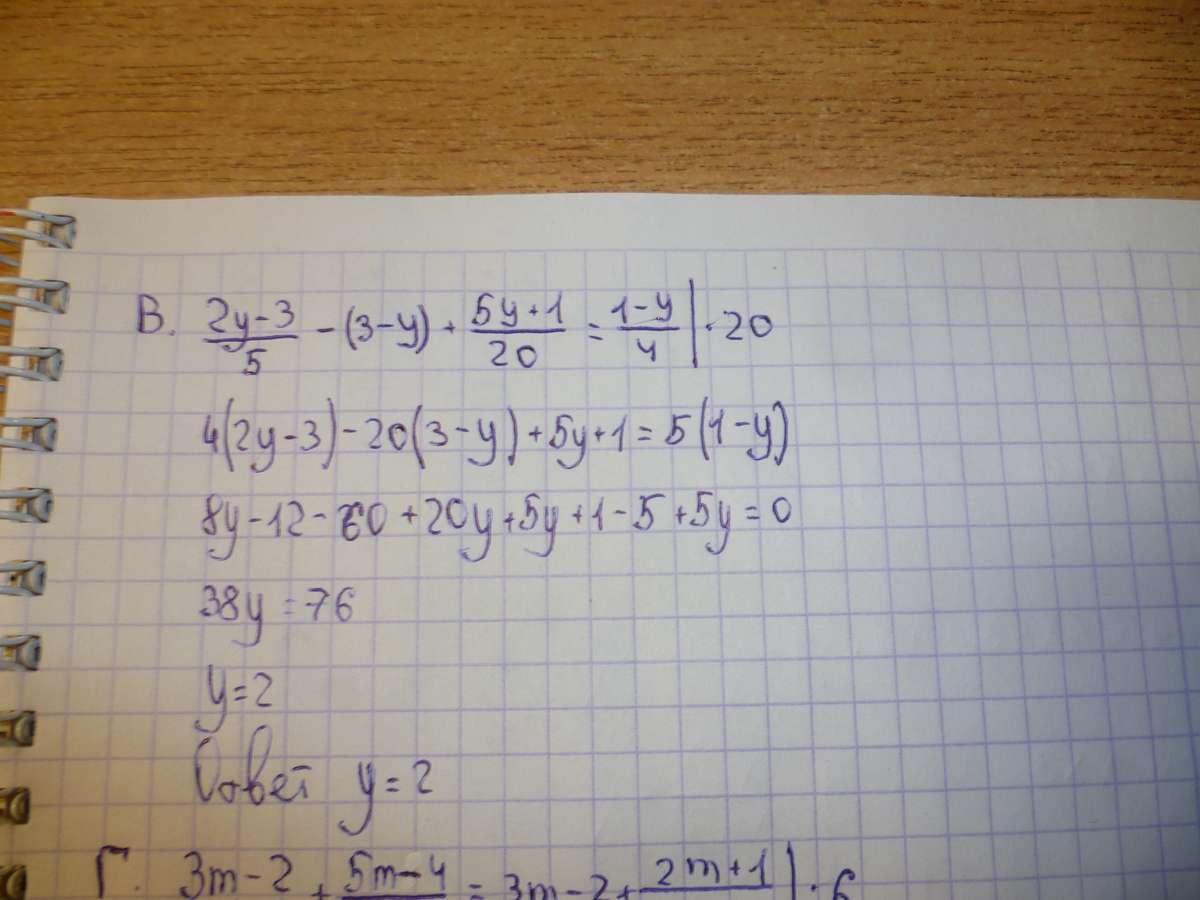 В. (2y-3)/5 - (3-y) + (5y+1)/20 = (1-y)/4 | ·20
4(2y-3)-20(3-y)+5y+1=5(1-y)
8y-12-60+20y+5y+1-5+5y=0
38y=76
y=2
Ответ y=2
Г. 3m-2 + 5m-4 = 3m-2+ 2m+1 | ·6